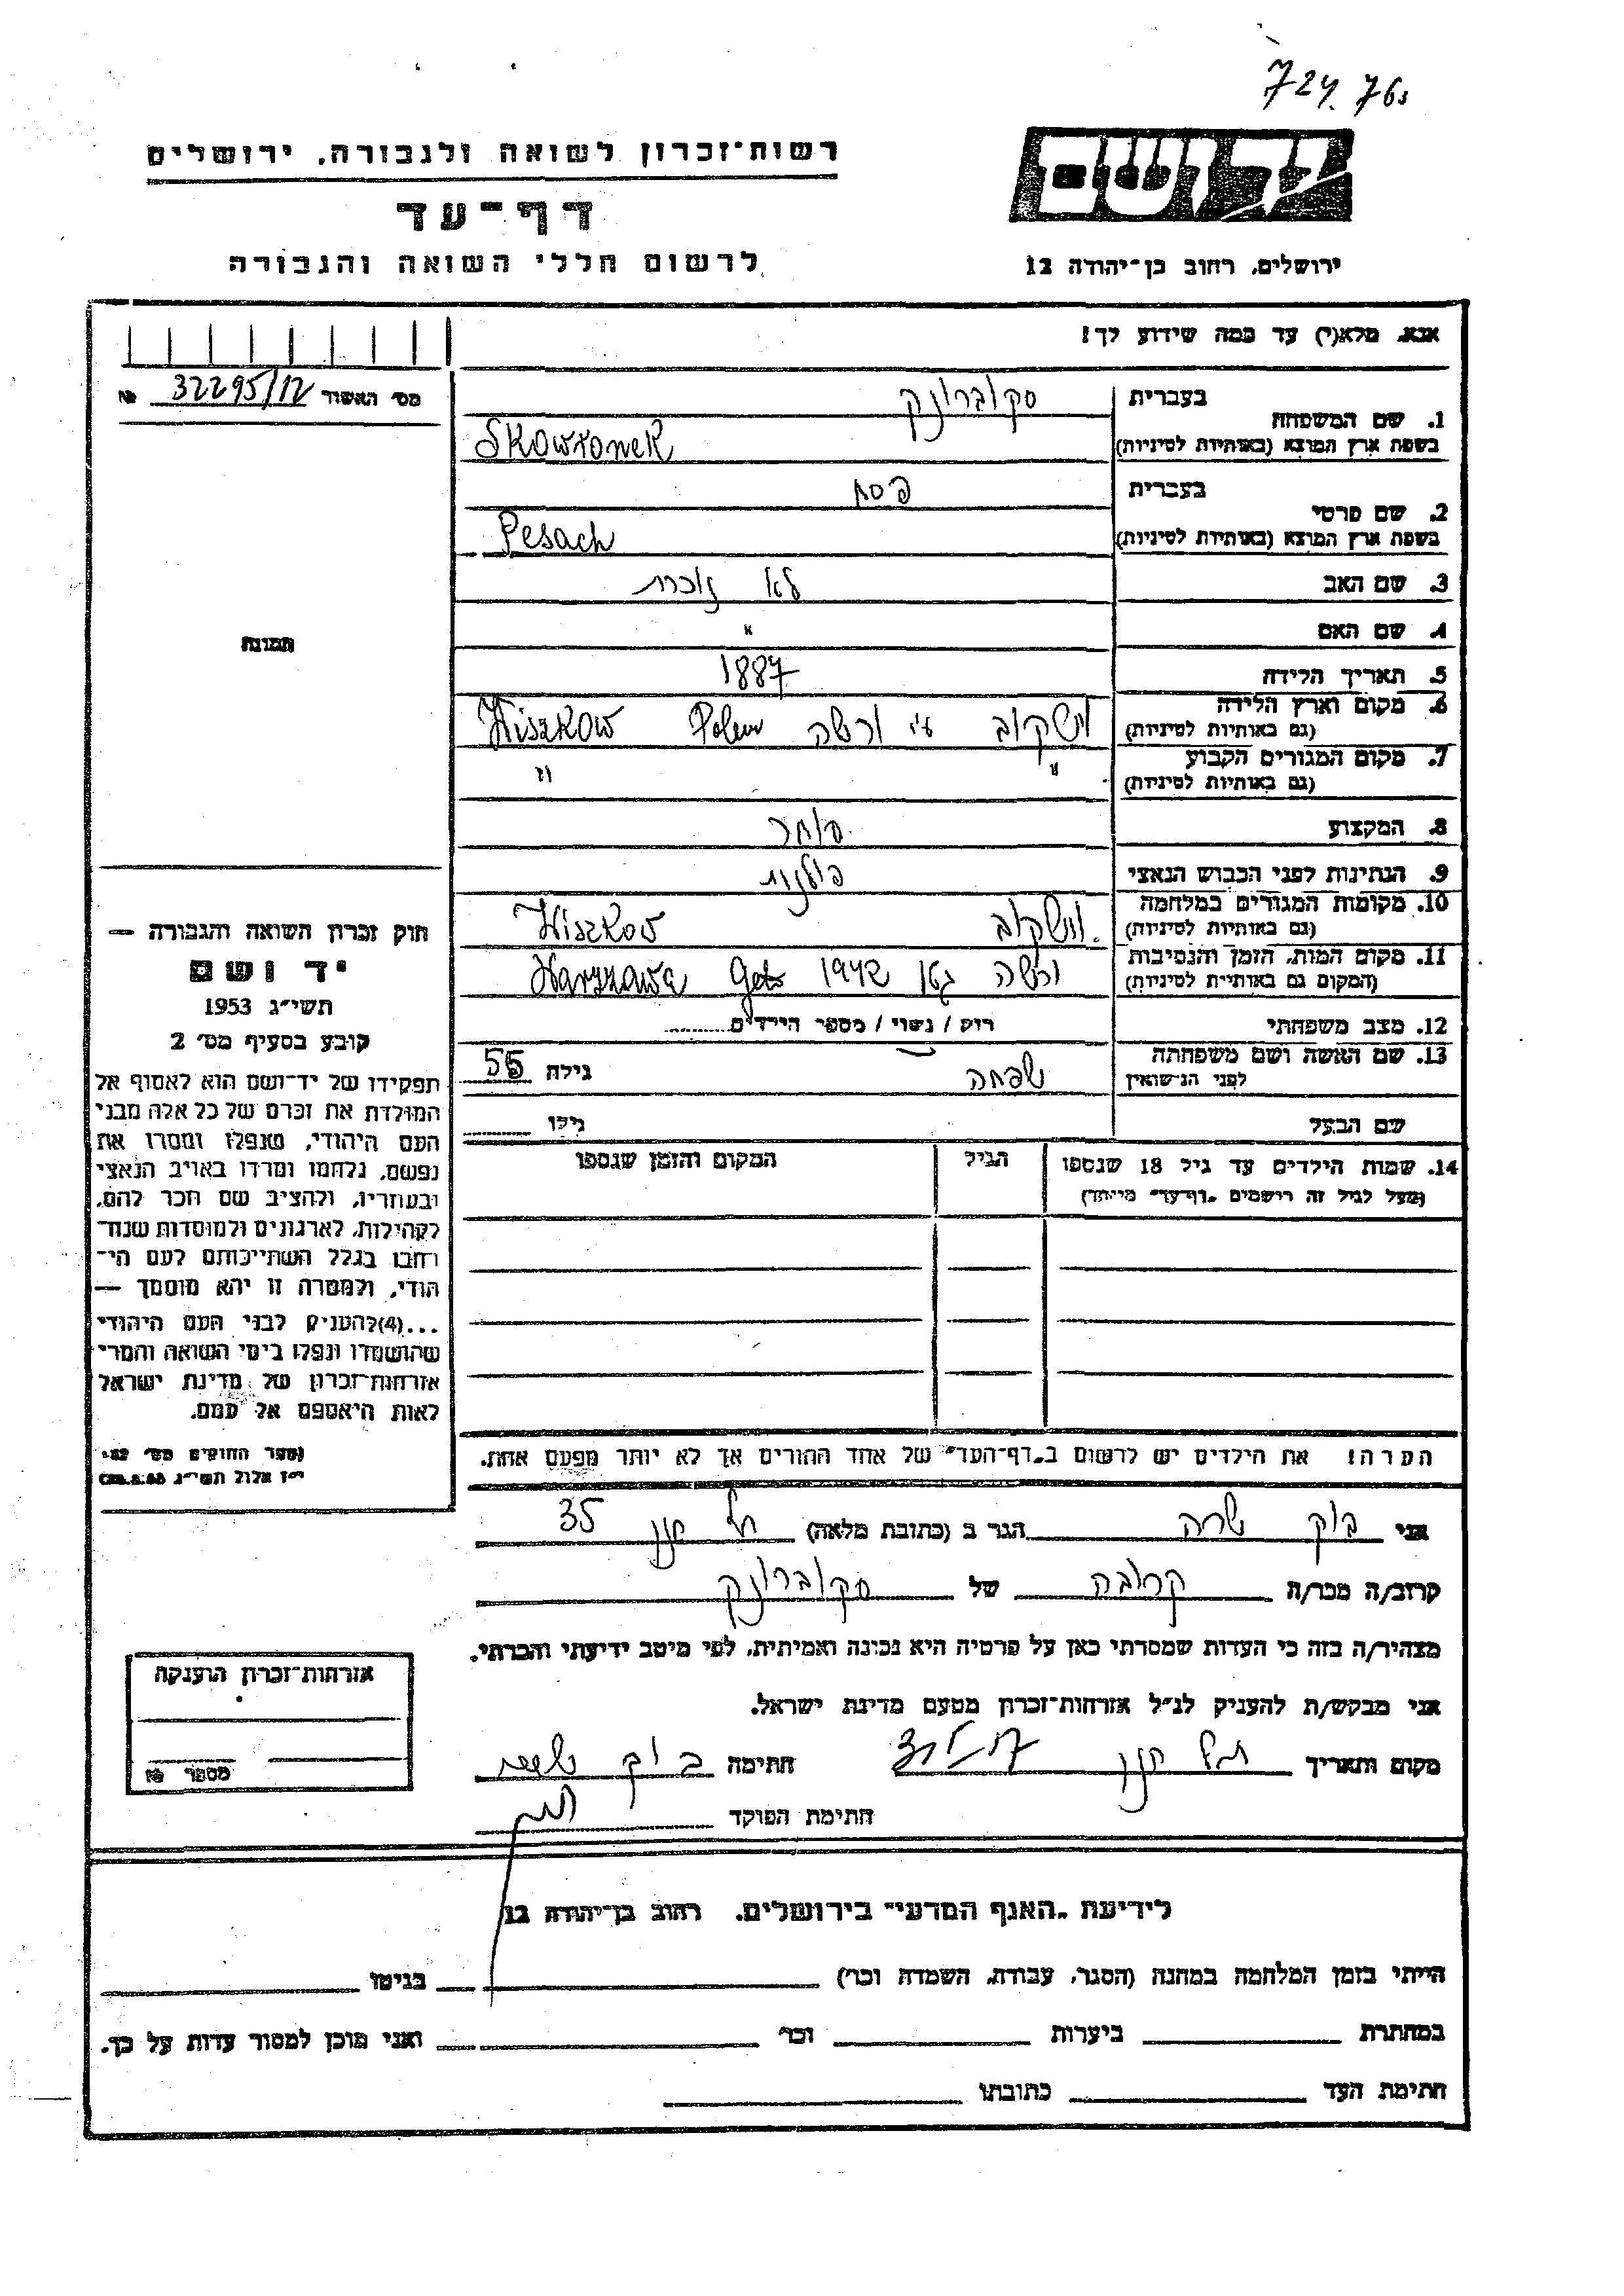 724. 76
רשות־זכרון לשואה ולגבורה, ירושלים
דף־עד
לרשום חללי השואה והגבורה
יד ושם
ירושלים, רחוב בן־יהודה 12
אנא, מלא(י) עד כמה שידוע לך!
מס׳ האשור 32295/12 №
תמונה
1. שם המשפחה
בעברית סקוברונק
בשפת ארץ המוצא (באותיות לטיניות) Skowronek
2. שם פרטי
בעברית פסח
בשפת ארץ המוצא (באותיות לטיניות) Pesach
3. שם האב לא זוכרת
4. שם האם "
5. תאריך הלידה 1887
6. מקום וארץ הלידה
(גם באותיות לטיניות) וישקוב ע"י ורשה Polen Wiszkow
7. מקום המגורים הקבוע " "
(גם באותיות לטיניות)
8. המקצוע סוחר
9. הנתינות לפני הכבוש הנאצי פולנית
10. מקומות המגורים במלחמה
(גם באותיות לטיניות) וישקוב Wiszkow
11. מקום המות, הזמן והנסיבות
(המקום גם באותיות לטיניות) ורשה גטו 1942 Geto Warszawa
12. מצב משפחתי רווק / נשוי / מספר הילדים
13. שם האשה ושם משפחתה
לפני הנישואין שפחה גילה 55
שם הבעל גילו
14. שמות הילדים עד גיל 18 שנספו
(מעל לגיל זה רושמים "דף־עד" מיוחד)
הגיל
המקום והזמן שנספו
הערה! את הילדים יש לרשום ב"דף־העד" של אחד ההורים אך לא יותר מפעם אחת.
חוק זכרון השואה והגבורה —
יד ושם
תשי״ג 1953
קובע בסעיף מס׳ 2
תפקידו של יד־ושם הוא לאסוף אל
המולדת את זכרם של כל אלה מבני
העם היהודי, שנפלו ומסרו את
נפשם, נלחמו ומרדו באויב הנאצי
ובעוזריו, ולהציב שם וזכר להם,
לקהילות, לארגונים ולמוסדות שנח־
רבו בגלל השתייכותם לעם הי־
הודי, ולמטרה זו יהא מוסמך —
...(4) להעניק לבני העם היהודי
שהושמדו ונפלו בימי השואה והמרי
אזרחות־זכרון של מדינת ישראל
לאות היאספם אל עמם.
(ספר החוקים מס׳ 132
י״ז אלול תשי״ג 28.8.53)
אני בוק שרה הגר ב (כתובת מלאה) תל חנן 35
קרוב/ה מכר/ה קרובה של סקוברונק
מצהיר/ה בזה כי העדות שמסרתי כאן על פרטיה היא נכונה ואמיתית, לפי מיטב ידיעתי והכרתי.
אני מבקש/ת להעניק לנ״ל אזרחות־זכרון מטעם מדינת ישראל.
מקום ותאריך תל חנן חתימה בוק שרה
חתימת הפוקד
אזרחות־זכרון הוענקה
מספר №
לידיעת "האגף המדעי" בירושלים, רחוב בן־יהודה 12
הייתי בזמן המלחמה במחנה (הסגר, עבודה, השמדה וכו׳) בגיטו
במחתרת ביערות וכו׳ ואני מוכן למסור עדות על כך.
חתימת העד כתובתו